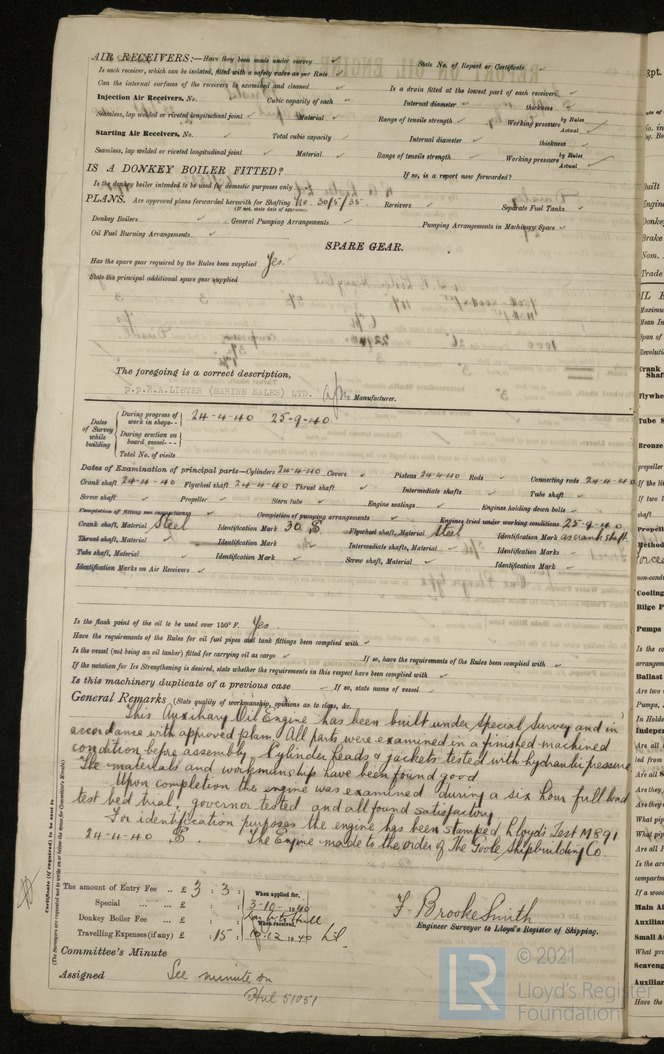 AIR RECEIVERS:—Have they been made under survey ✓ State No. of Report or Certificate ✓
Is each receiver, which can be isolated, fitted with a safety valve as per Rule ✓
Can the internal surfaces of the receivers be examined and cleaned ✓ Is a drain fitted at the lowest part of each receiver ✓
Injection Air Receivers, No. Cubic capacity of each ✓ Internal diameter ✓ thickness ✓
Seamless, lap welded or riveted longitudinal joint ✓ Material ✓ Range of tensile strength ✓ Working pressure by Rules Actual ✓
Starting Air Receivers, No. ✓ Total cubic capacity ✓ Internal diameter ✓ thickness ✓
Seamless, lap welded or riveted longitudinal joint ✓ Material ✓ Range of tensile strength ✓ Working pressure by Rules Actual ✓
IS A DONKEY BOILER FITTED? If so, is a report now forwarded?
Is the donkey boiler intended to be used for domestic purposes only
PLANS. Are approved plans forwarded herewith for Shafting No. 30/5/35. Receivers ✓ Separate Fuel Tanks ✓
(If not, state date of approval)
Donkey Boilers ✓ General Pumping Arrangements ✓ Pumping Arrangements in Machinery Space ✓
Oil Fuel Burning Arrangements ✓
SPARE GEAR.
Has the spare gear required by the Rules been supplied Yes.
State the principal additional spare gear supplied
The foregoing is a correct description,
p.p. R.A. LISTER (MARINE SALES) LTD. Manufacturer.
Dates of Survey while building
During progress of work in shops - - 24-4-40 25-9-40
During erection on board vessel - - -
Total No. of visits
Dates of Examination of principal parts—Cylinders 24-4-40 Covers ✓ Pistons 24-4-40 Rods ✓ Connecting rods 24-4-40
Crank shaft 24-4-40 Flywheel shaft 24-4-40 Thrust shaft ✓ Intermediate shafts ✓ Tube shaft ✓
Screw shaft ✓ Propeller ✓ Stern tube ✓ Engine seatings ✓ Engines holding down bolts ✓
Completion of fitting sea connections ✓ Completion of pumping arrangements ✓ Engines tried under working conditions 25-9-40
Crank shaft, Material Steel Identification Mark 30 Flywheel shaft, Material Steel Identification Mark as crank shaft
Thrust shaft, Material ✓ Identification Mark ✓ Intermediate shafts, Material ✓ Identification Marks ✓
Tube shaft, Material ✓ Identification Mark ✓ Screw shaft, Material ✓ Identification Mark ✓
Identification Marks on Air Receivers ✓
Is the flash point of the oil to be used over 150° F. Yes
Have the requirements of the Rules for oil fuel pipes and tank fittings been complied with ✓
Is the vessel (not being an oil tanker) fitted for carrying oil as cargo ✓ If so, have the requirements of the Rules been complied with ✓
If the notation for Ice Strengthening is desired, state whether the requirements in this respect have been complied with ✓
Is this machinery duplicate of a previous case If so, state name of vessel
General Remarks (State quality of workmanship, opinions as to class, &c.
This Auxiliary Oil Engine has been built under Special Survey and in
accordance with approved plan. All parts were examined in a finished machined
condition before assembly. Cylinder heads & jackets tested with hydraulic pressure
The materials and workmanship have been found good
Upon completion the engine was examined during a six hour full load
test bed trial, governor tested and all found satisfactory
For identification purposes the engine has been stamped Lloyd's Test M891
24-4-40 . The Engine made to the order of The Goole Shipbuilding Co.
Certificate (if required) to be sent to
(The Surveyors are requested not to write on or below the space for Committee's Minute.)
The amount of Entry Fee .. £ 3 : 3 : When applied for,
Special ... ... £ : 3-10-1940
Donkey Boiler Fee ... £ : When received,
Travelling Expenses (if any) £ : 15 : 10-12 1940
F. Brooke Smith
Engineer Surveyor to Lloyd's Register of Shipping.
Committee's Minute
Assigned See minute on
Hul 51051
LR
© 2021
Lloyd's Register
Foundation